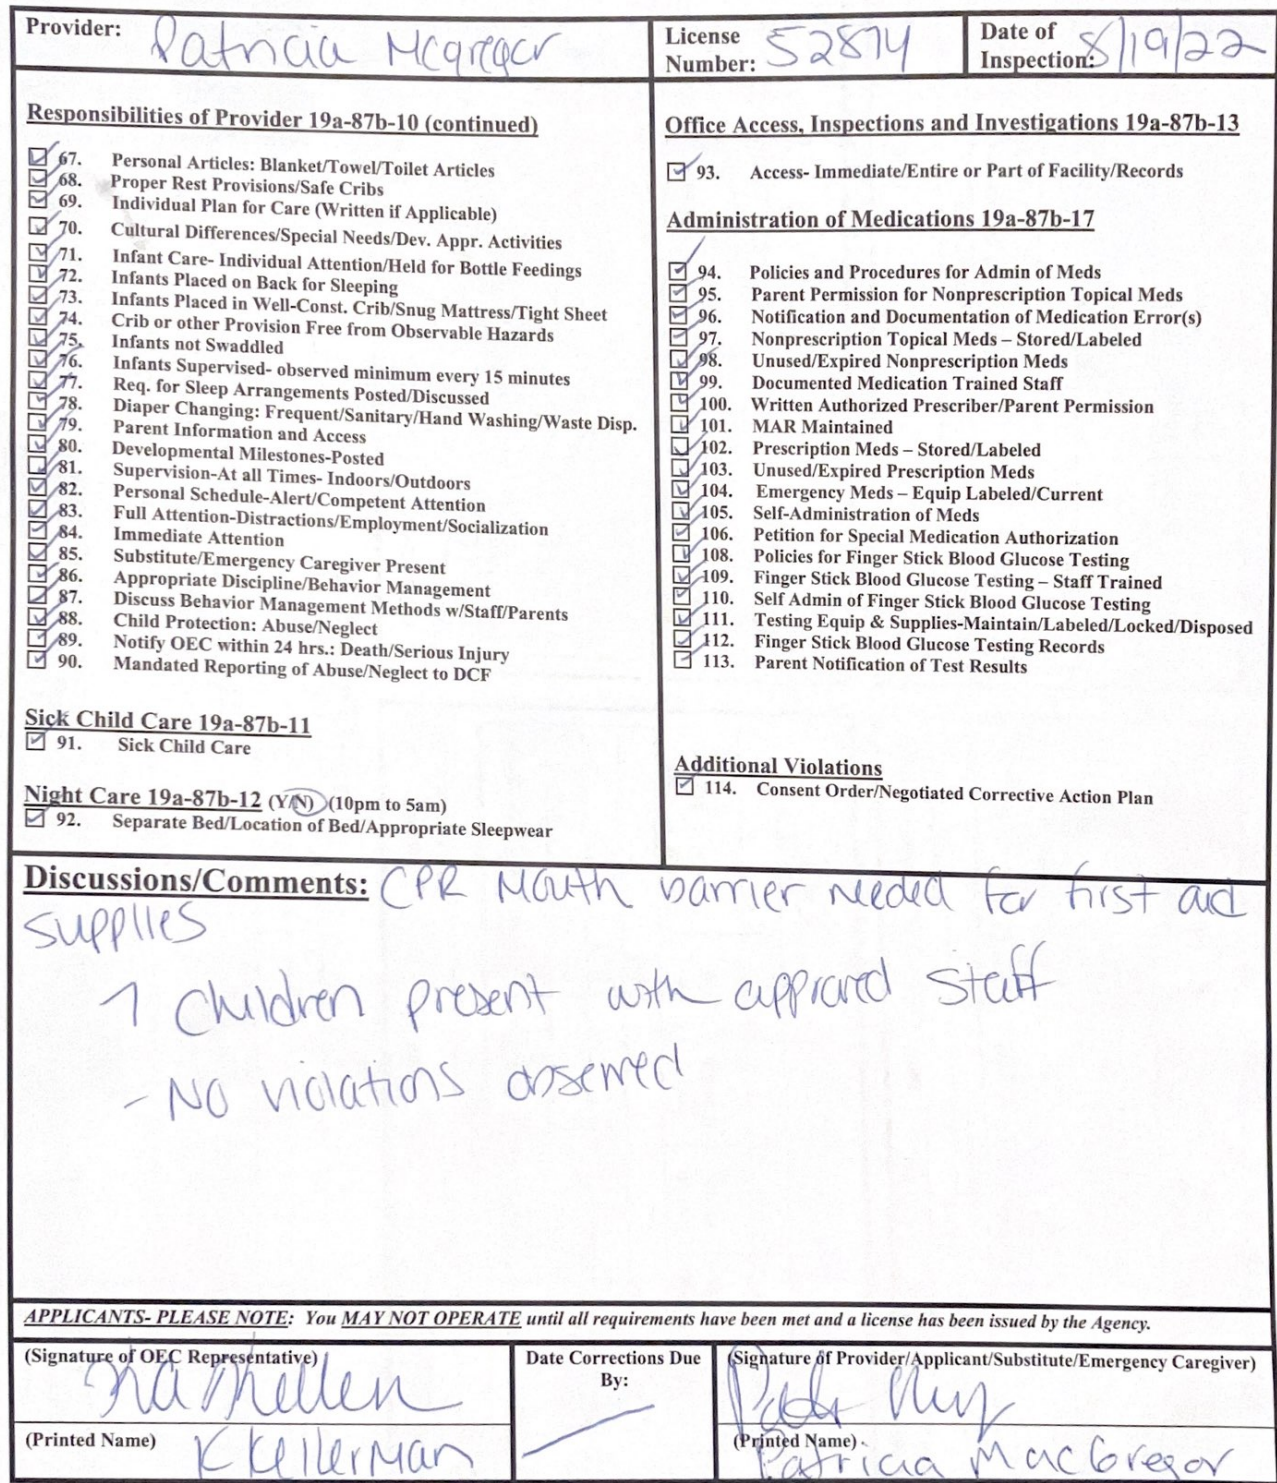 Provider: Patricia Mcgregor
License Number: 52874
Date of Inspection: 8/19/22
Responsibilities of Provider 19a-87b-10 (continued)
67. Personal Articles: Blanket/Towel/Toilet Articles
68. Proper Rest Provisions/Safe Cribs
69. Individual Plan for Care (Written if Applicable)
70. Cultural Differences/Special Needs/Dev. Appr. Activities
71. Infant Care- Individual Attention/Held for Bottle Feedings
72. Infants Placed on Back for Sleeping
73. Infants Placed in Well-Const. Crib/Snug Mattress/Tight Sheet
74. Crib or other Provision Free from Observable Hazards
75. Infants not Swaddled
76. Infants Supervised- observed minimum every 15 minutes
77. Req. for Sleep Arrangements Posted/Discussed
78. Diaper Changing: Frequent/Sanitary/Hand Washing/Waste Disp.
79. Parent Information and Access
80. Developmental Milestones-Posted
81. Supervision-At all Times- Indoors/Outdoors
82. Personal Schedule-Alert/Competent Attention
83. Full Attention-Distractions/Employment/Socialization
84. Immediate Attention
85. Substitute/Emergency Caregiver Present
86. Appropriate Discipline/Behavior Management
87. Discuss Behavior Management Methods w/Staff/Parents
88. Child Protection: Abuse/Neglect
89. Notify OEC within 24 hrs.: Death/Serious Injury
90. Mandated Reporting of Abuse/Neglect to DCF
Sick Child Care 19a-87b-11
91. Sick Child Care
Night Care 19a-87b-12 (Y/N) (10pm to 5am)
92. Separate Bed/Location of Bed/Appropriate Sleepwear
Office Access, Inspections and Investigations 19a-87b-13
93. Access- Immediate/Entire or Part of Facility/Records
Administration of Medications 19a-87b-17
94. Policies and Procedures for Admin of Meds
95. Parent Permission for Nonprescription Topical Meds
96. Notification and Documentation of Medication Error(s)
97. Nonprescription Topical Meds – Stored/Labeled
98. Unused/Expired Nonprescription Meds
99. Documented Medication Trained Staff
100. Written Authorized Prescriber/Parent Permission
101. MAR Maintained
102. Prescription Meds – Stored/Labeled
103. Unused/Expired Prescription Meds
104. Emergency Meds – Equip Labeled/Current
105. Self-Administration of Meds
106. Petition for Special Medication Authorization
108. Policies for Finger Stick Blood Glucose Testing
109. Finger Stick Blood Glucose Testing – Staff Trained
110. Self Admin of Finger Stick Blood Glucose Testing
111. Testing Equip & Supplies-Maintain/Labeled/Locked/Disposed
112. Finger Stick Blood Glucose Testing Records
113. Parent Notification of Test Results
Additional Violations
114. Consent Order/Negotiated Corrective Action Plan
Discussions/Comments: CPR Mouth barrier needed for first aid
supplies
7 Children present with approved staff
- No violations observed
APPLICANTS- PLEASE NOTE: You MAY NOT OPERATE until all requirements have been met and a license has been issued by the Agency.
(Signature of OEC Representative)
(Printed Name) K Kellerman
Date Corrections Due
By:
(Signature of Provider/Applicant/Substitute/Emergency Caregiver)
(Printed Name)
Patricia MacGregor